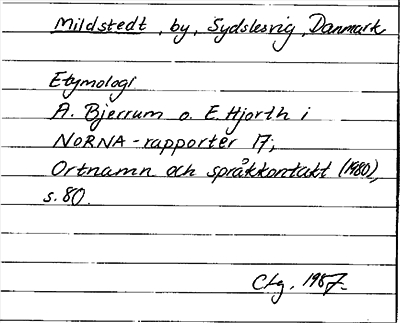 Mildstedt, by, Sydslesvig, Danmark
Etymologi
A. Bjerrum o. E. Hjorth i
NORNA-rapporter 17;
Ortnamn och språkkontakt (1980),
s. 80.
Ctg. 1987.